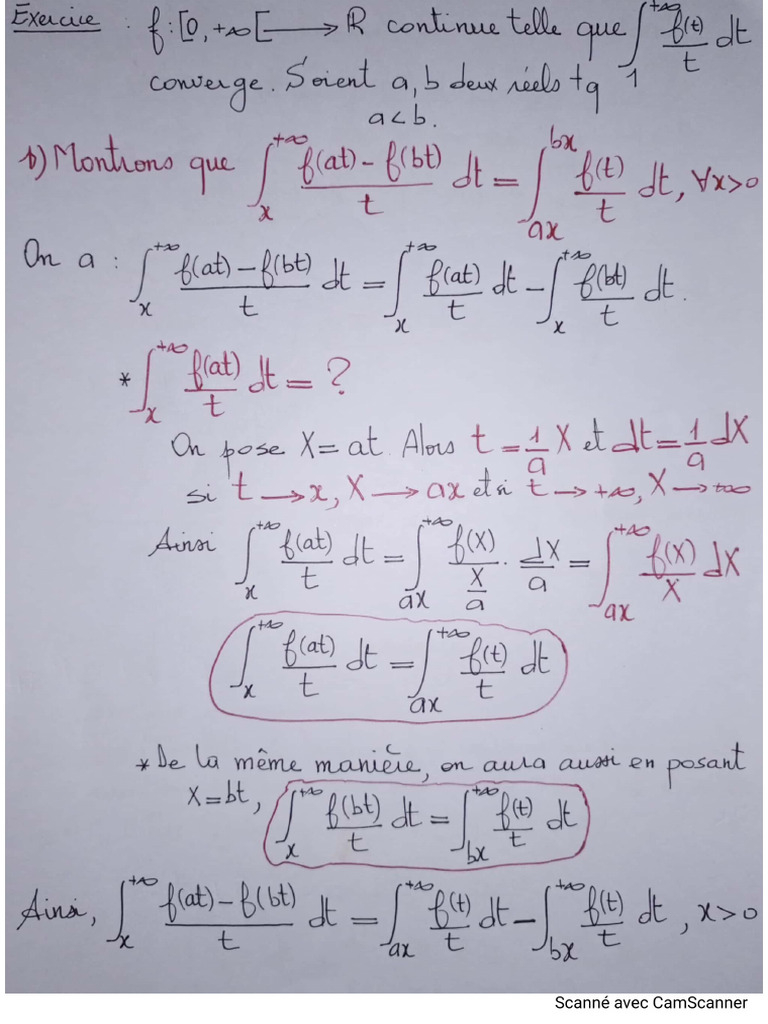 Exercice : f: [0, +∞[ ⟶ ℝ continue telle que ∫_1^{+∞} f(t)/t dt
converge. Soient a, b deux réels tq
a < b.
1) Montrons que ∫_x^{+∞} (f(at) - f(bt))/t dt = ∫_{ax}^{bx} f(t)/t dt, ∀x>0
On a : ∫_x^{+∞} (f(at) - f(bt))/t dt = ∫_x^{+∞} f(at)/t dt - ∫_x^{+∞} f(bt)/t dt.
* ∫_x^{+∞} f(at)/t dt = ?
On pose X = at. Alors t = 1/a X et dt = 1/a dX
si t ⟶ x, X ⟶ ax et si t ⟶ +∞, X ⟶ +∞
Ainsi ∫_x^{+∞} f(at)/t dt = ∫_{ax}^{+∞} f(X)/(X/a) · dX/a = ∫_{ax}^{+∞} f(X)/X dX
∫_x^{+∞} f(at)/t dt = ∫_{ax}^{+∞} f(t)/t dt
* De la même manière, on aura aussi en posant
X = bt, ∫_x^{+∞} f(bt)/t dt = ∫_{bx}^{+∞} f(t)/t dt
Ainsi, ∫_x^{+∞} (f(at) - f(bt))/t dt = ∫_{ax}^{+∞} f(t)/t dt - ∫_{bx}^{+∞} f(t)/t dt, x>0
Scanné avec CamScanner